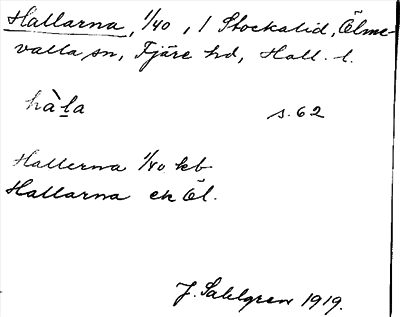 Hallarna, 1/40, i Stockalid, Ölme-
valla sn, Fjäre hd, Hall. l.
hàla s. 62
Hallerna 1/40 kb
Hallarna ek Öl.
J. Sahlgren 1919.